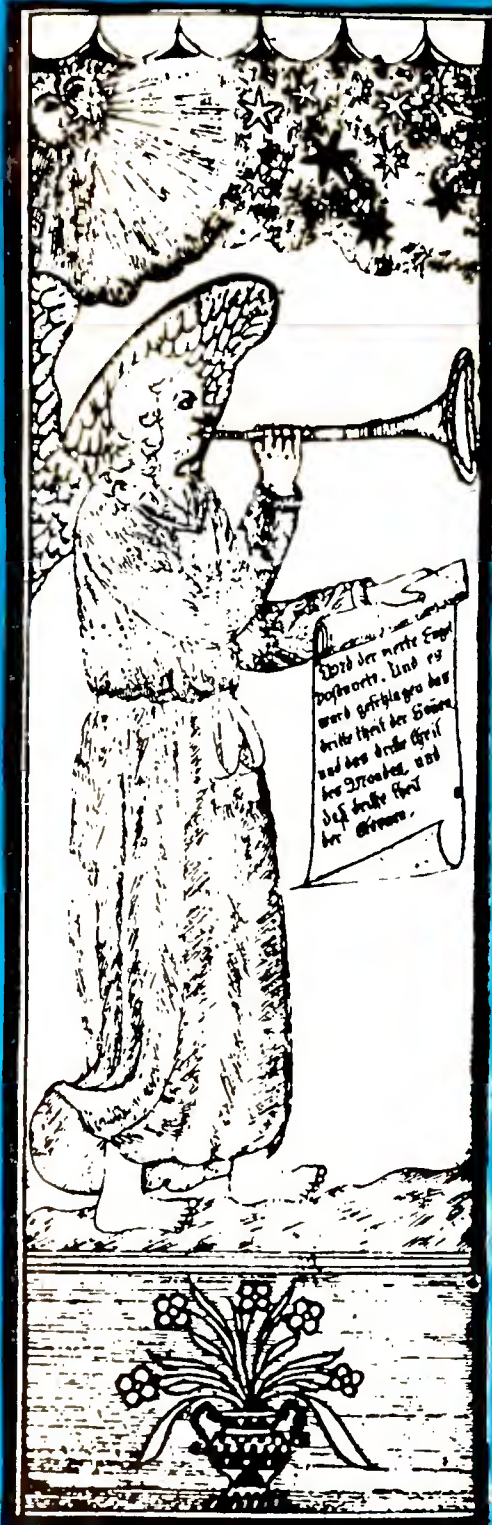 Und der vierte Engel
posaunete. Und es
ward geschlagen das
dritte theil der Sonnen
und das dritte theil
des Mondes und
das dritte theil
der Sternen.